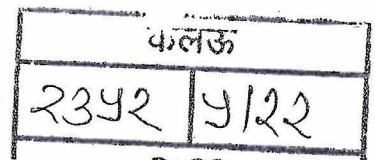 कलऊ
२३५२ ५/२२